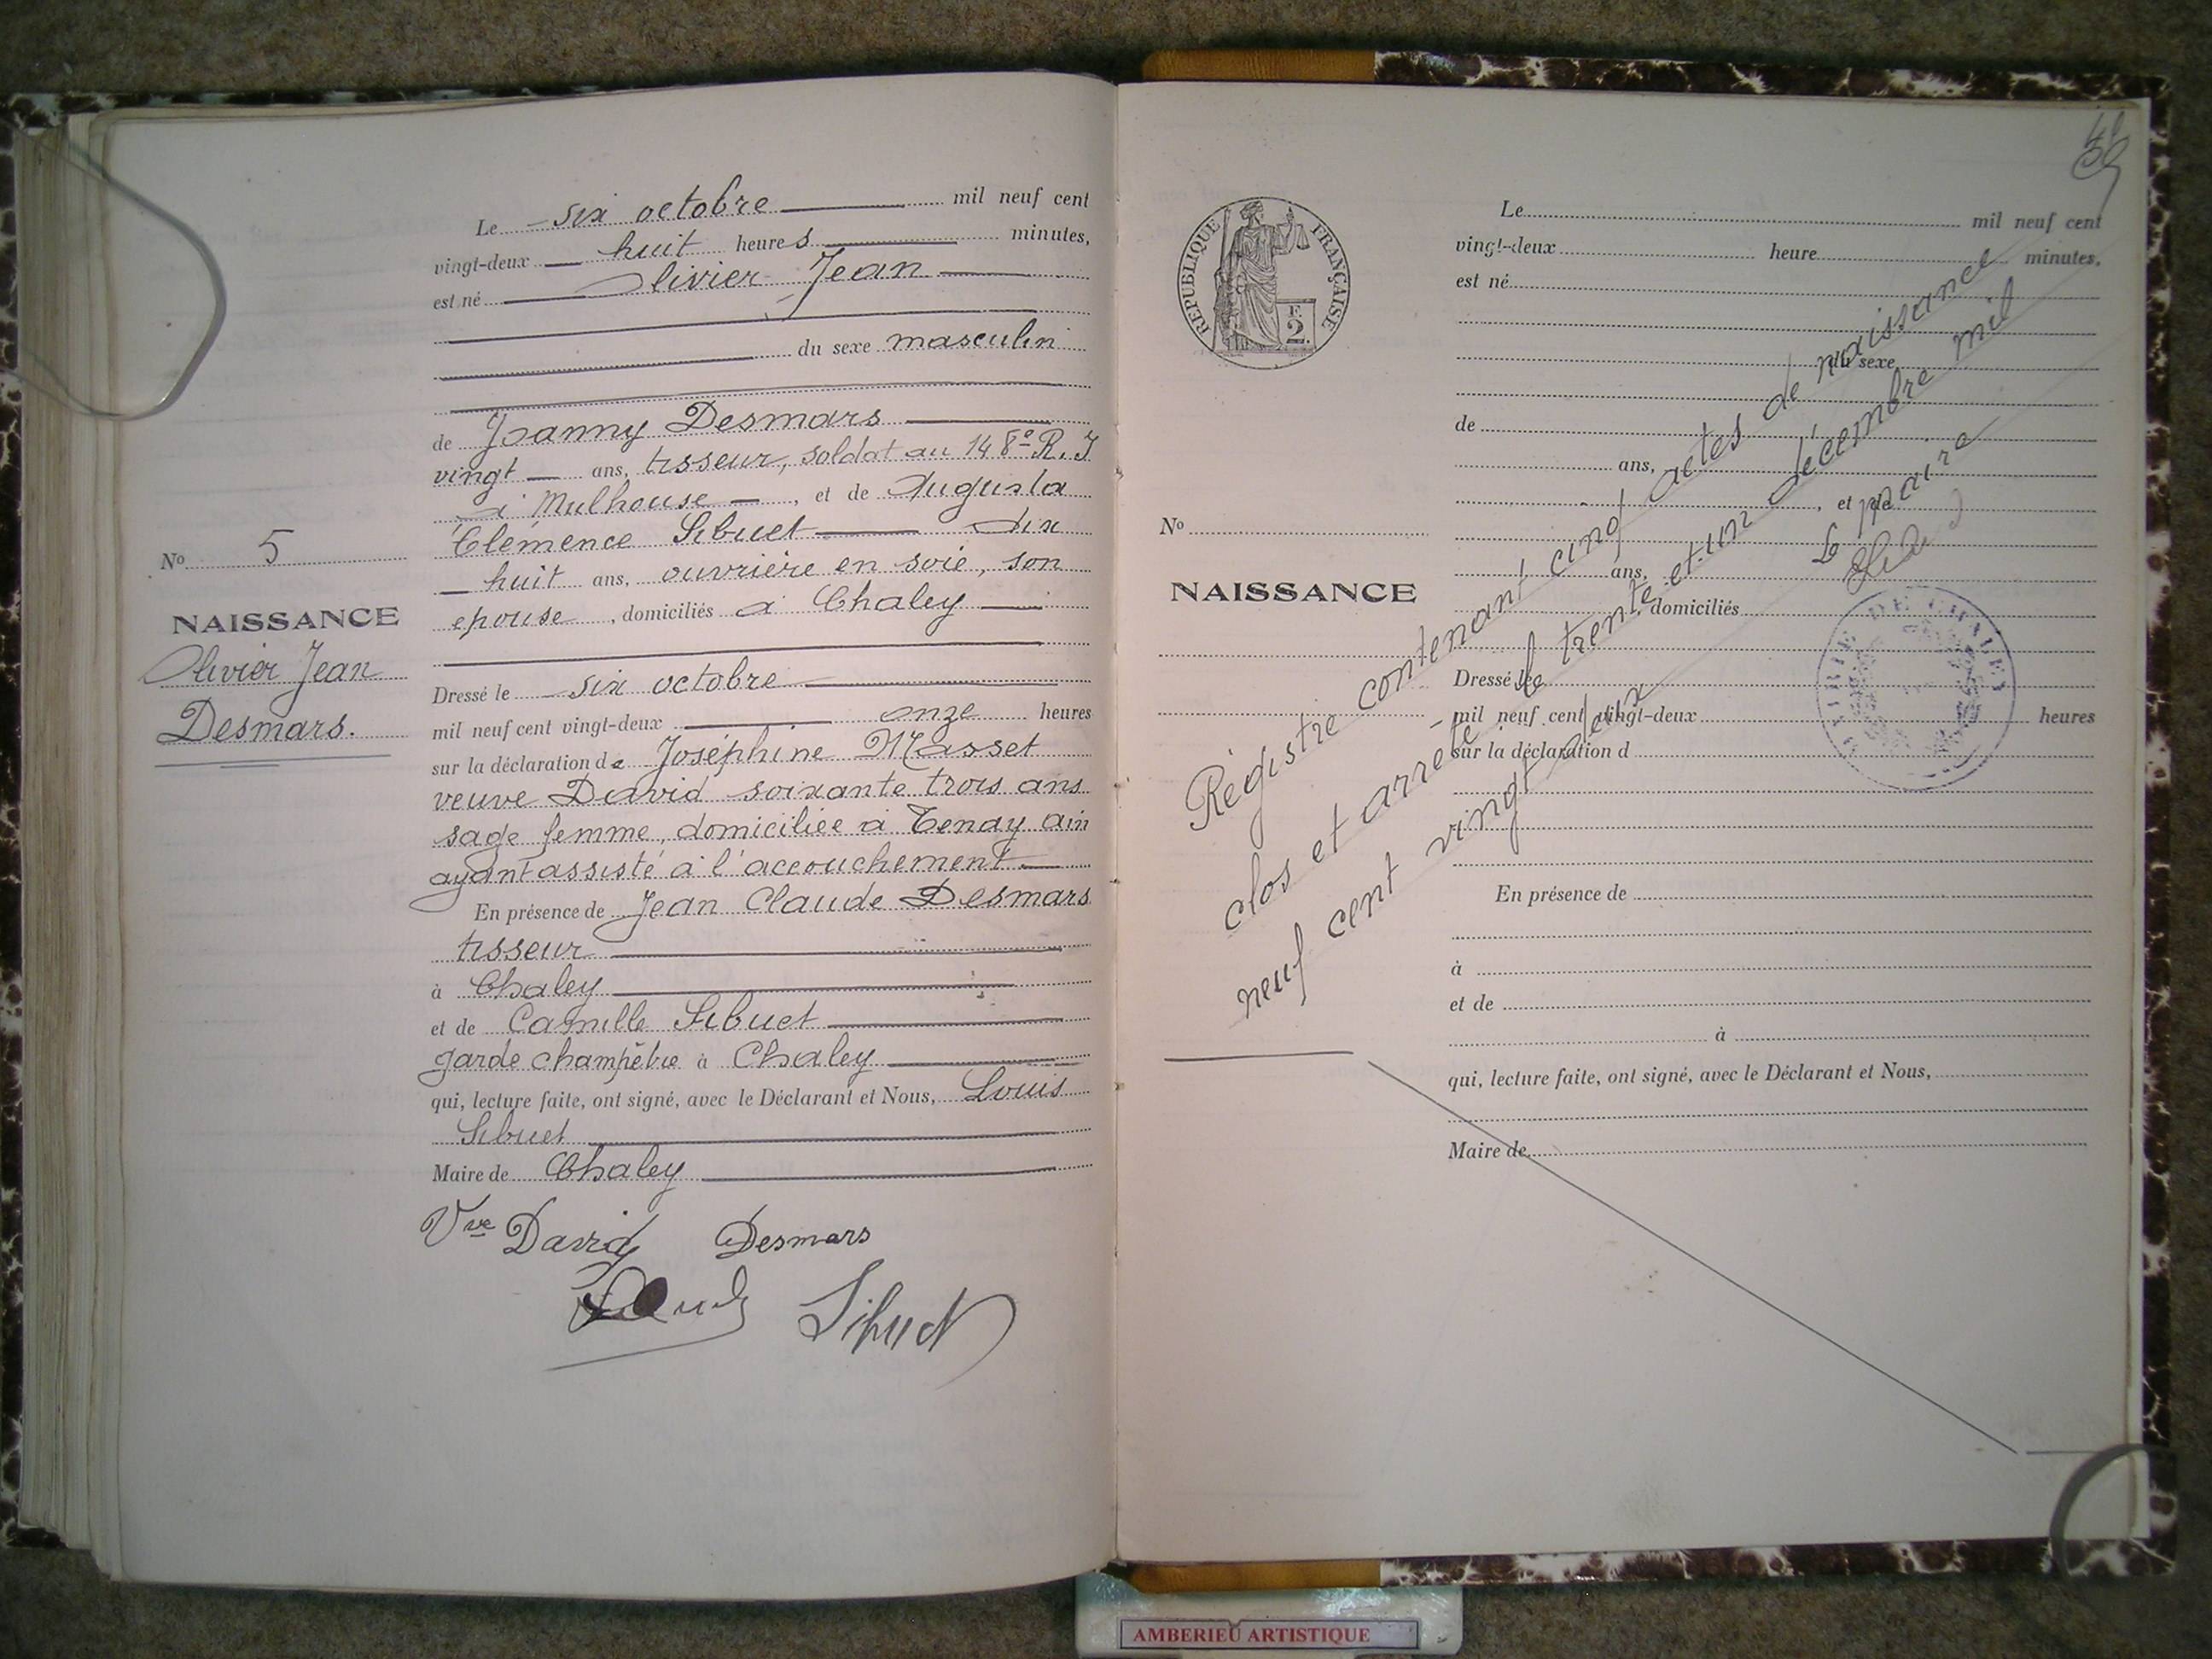 Le six octobre mil neuf cent
vingt-deux huit heures minutes,
est né Olivier Jean
du sexe masculin
de Joanny Desmars
vingt ans, tisseur, soldat au 148e R.I
à Mulhouse, et de Augusta
Clémence Sibuet dix
huit ans, ouvrière en soie, son
epouse, domiciliés à Chaley
No 5
NAISSANCE
Olivier Jean
Desmars.
Dressé le six octobre
mil neuf cent vingt-deux onze heures
sur la déclaration de Joséphine Masset
veuve David soixante trois ans
sage femme, domiciliée à Tenay Ain
ayant assisté à l'accouchement
En présence de Jean Claude Desmars
tisseur
à Chaley
et de Camille Sibuet
garde champêtre à Chaley
qui, lecture faite, ont signé, avec le Déclarant et Nous, Louis
Sibuet
Maire de Chaley
Vve David Desmars
Sibuet
RÉPUBLIQUE FRANÇAISE
2
Le mil neuf cent
vingt-deux heure minutes,
est né
du sexe
de
ans,
, et de
No
NAISSANCE
ans,
, domiciliés
Dressé le
mil neuf cent vingt-deux heures
sur la déclaration d
En présence de
à
et de
à
qui, lecture faite, ont signé, avec le Déclarant et Nous,
Maire de
Régistre contenant cinq actes de naissance
clos et arrêté le trente et un décembre mil
neuf cent vingt deux
Le maire
AMBERIEU ARTISTIQUE